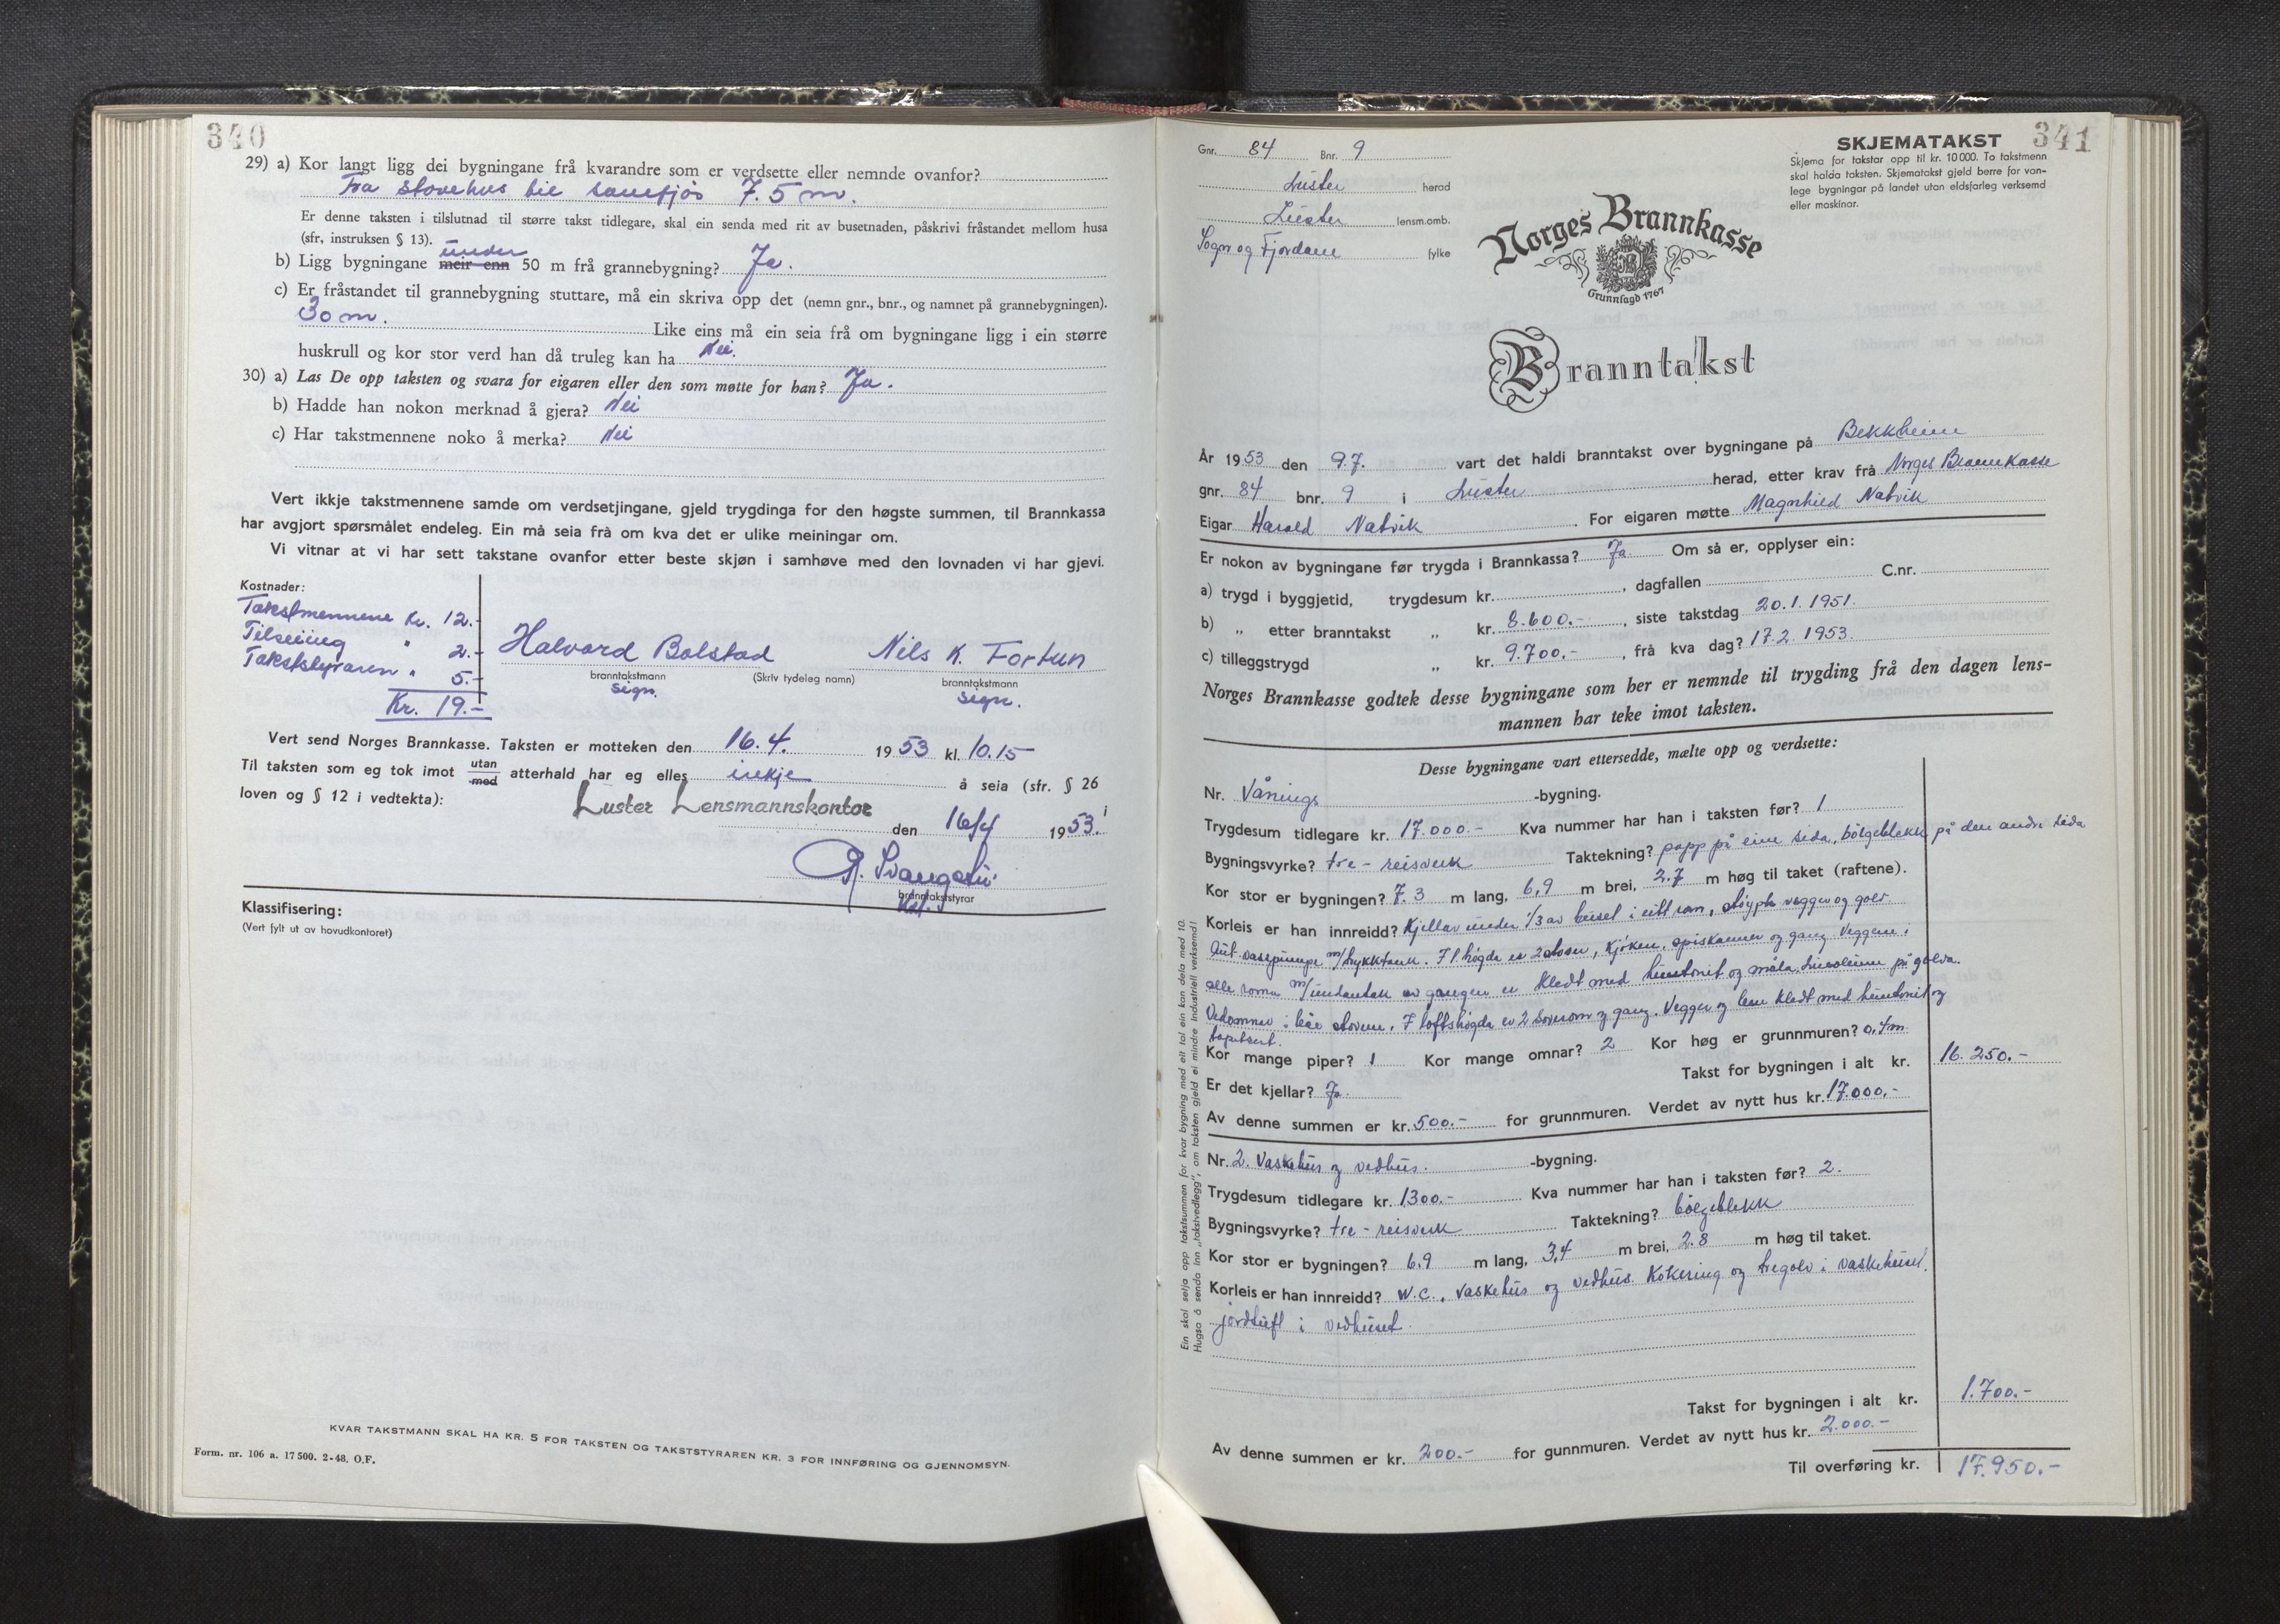 340
29) a) Kor langt ligg dei bygningane frå kvarandre som er verdsette eller nemnde ovanfor?
Fra stovehus til sauefjøs 7.5 m.
Er denne taksten i tilslutnad til større takst tidlegare, skal ein senda med rit av busetnaden, påskrivi fråstandet mellom husa
(sfr, instruksen § 13).
under
b) Ligg bygningane meir enn 50 m frå grannebygning? Ja.
c) Er fråstandet til grannebygning stuttare, må ein skriva opp det (nemn gnr., bnr., og namnet på grannebygningen).
30 m. Like eins må ein seia frå om bygningane ligg i ein større
huskrull og kor stor verd han då truleg kan ha Nei.
30) a) Las De opp taksten og svara for eigaren eller den som møtte for han? Ja.
b) Hadde han nokon merknad å gjera? Nei
c) Har takstmennene noko å merka? Nei
Vert ikkje takstmennene samde om verdsetjingane, gjeld trygdinga for den høgste summen, til Brannkassa
har avgjort spørsmålet endeleg. Ein må seia frå om kva det er ulike meiningar om.
Vi vitnar at vi har sett takstane ovanfor etter beste skjøn i samhøve med den lovnaden vi har gjevi.
Kostnader:
Takstmennene Kr. 12.-
Tilseiing " 2.-
Takststyraren " 5.-
Kr. 19.-
Halvard Bolstad Nils K. Fortun
branntakstmann (Skriv tydeleg namn) branntakstmann
sign. sign.
Vert send Norges Brannkasse. Taksten er motteken den 16.4. 1953 kl. 10.15
Til taksten som eg tok imot utan med atterhald har eg elles ikkje å seia (sfr. § 26
loven og § 12 i vedtekta):
Luster Lensmannskontor den 16/4 1953.
branntakststyrar
Klassifisering:
(Vert fylt ut av hovudkontoret)
KVAR TAKSTMANN SKAL HA KR. 5 FOR TAKSTEN OG TAKSTSTYRAREN KR. 3 FOR INNFØRING OG GJENNOMSYN.
Form. nr. 106 a. 17 500. 2-48. O.F.
341
Gnr. 84 Bnr. 9
Luster herad
Luster lensm.omb.
Sogn og Fjordane fylke
SKJEMATAKST
Skjema for takstar opp til kr. 10 000. To takstmenn
skal halda taksten. Skjematakst gjeld berre for van-
lege bygningar på landet utan eldsfarleg verksemd
eller maskinar.
Norges Brannkasse
Grunnlagd 1767
Branntakst
År 1953 den 9.7. vart det haldi branntakst over bygningane på Bekkheim
gnr. 84 bnr. 9 i Luster herad, etter krav frå Norges Brannkasse
Eigar Harald Natvik. For eigaren møtte Magnhild Natvik
Er nokon av bygningane før trygda i Brannkassa? Ja. Om så er, opplyser ein:
a) trygd i byggjetid, trygdesum kr. , dagfallen C.nr.
b) „ etter branntakst „ kr. 8.600.- , siste takstdag 20.1.1951.
c) tilleggstrygd „ kr. 9.700.- , frå kva dag? 17.2.1953.
Norges Brannkasse godtek desse bygningane som her er nemnde til trygding frå den dagen lens-
mannen har teke imot taksten.
Desse bygningane vart ettersedde, mælte opp og verdsette:
Nr. Vånings -bygning.
Trygdesum tidlegare kr. 17.000.- Kva nummer har han i taksten før? 1
Bygningsvyrke? tre - reisverk Taktekning? papp på eine sida, bölgeblekk på den andre sida
Kor stor er bygningen? 7.3 m lang, 6,9 m brei, 2.7 m høg til taket (raftene).
Korleis er han innreidd? Kjellar under 1/3 av huset i eitt rom, støypte vegger og golv.
Aut. vasspumpe m/trykktank. I 1 högda er 2 stover, kjöken, spiskammer og gang. Veggene i
alle romma m/undantak av gangen er kledt med huntonit og måla. Linoleum på golva.
Vedomner i båe stovene. I loftshögda er 2 soverom og gang. Vegger og lem kledt med huntonit og
tapetsert.
Kor mange piper? 1 Kor mange omnar? 2 Kor høg er grunnmuren? 0,4m
Er det kjellar? Ja. Takst for bygningen i alt kr. 16.250.-
Av denne summen er kr. 500.- for grunnmuren. Verdet av nytt hus kr. 17.000.-
Nr. 2. Vaskehus og vedhus. -bygning.
Trygdesum tidlegare kr. 1300.- Kva nummer har han i taksten før? 2.
Bygningsvyrke? tre - reisverk Taktekning? bölgeblekk
Kor stor er bygningen? 6.9 m lang, 3,4 m brei, 2.8 m høg til taket.
Korleis er han innreidd? W.C., vaskehus og vedhus. Kokering og tregolv i vaskehuset.
jordtuft i vedhuset.
Takst for bygningen i alt kr. 1.700.-
Av denne summen er kr. 200.- for gunnmuren. Verdet av nytt hus kr. 2.000.-
Til overføring kr. 17.950.-
Ein skal setja opp takstsummen for kvar bygning med eit tal ein kan dela med 10.
Hugsa å senda inn „takstvedlegg", om taksten gjeld ei mindre industriell verksemd!